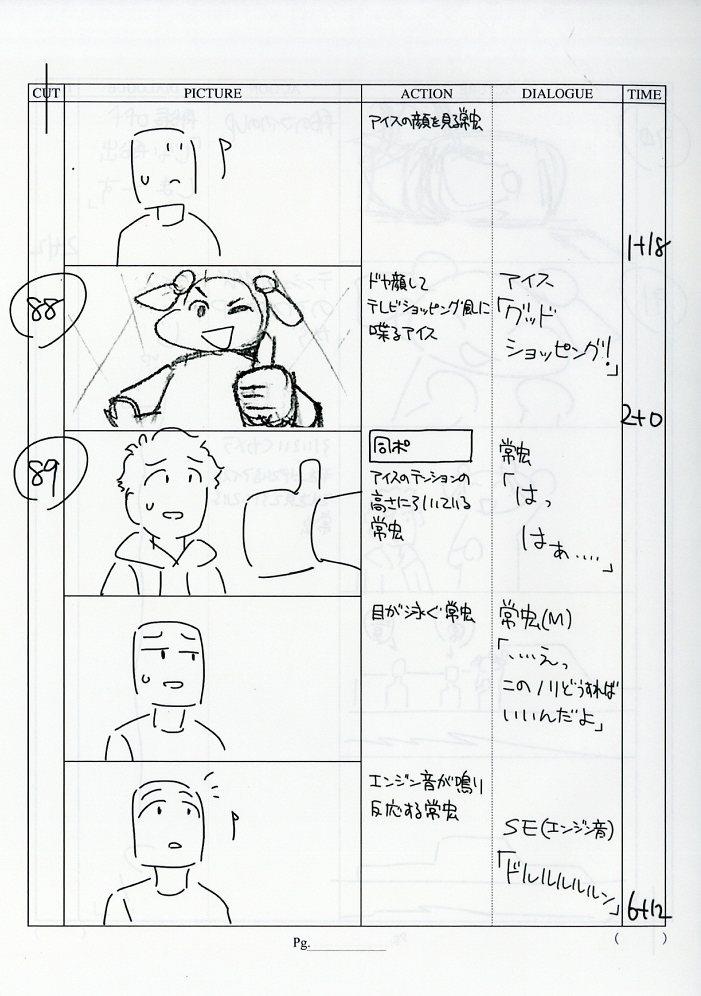 CUT PICTURE ACTION DIALOGUE TIME
アイスの顔を見る常虫
1+18
88
ドヤ顔して
テレビショッピング風に
喋るアイス
アイス
「グッド
ショッピング!」
2+0
89
同ポ
アイスのテンションの
高さに引いている
常虫
常虫
「はっ
はぁ…‥」
目が泳ぐ常虫
常虫(M)
「…えっ
このノリどうすれば
いいんだよ」
エンジン音が鳴り
反応する常虫
SE(エンジン音)
「ドルルルルルン」
6+12
Pg.
( )